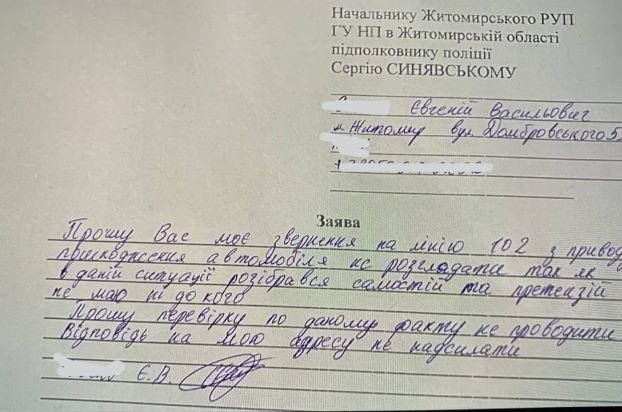 Начальнику Житомирського РУП
ГУ НП в Житомирській області
підполковнику поліції
Сергію СИНЯВСЬКОМУ
Євгеній Васильович
м. Житомир вул. Домбровського 5
Заява
Прошу Вас моє звернення на лінію 102 з привод
пошкодження автомобіля не розглядати так як
в даній ситуації розібрався самостій та претензій
не маю ні до кого
Прошу перевірку по даному факту не проводити
Відповідь на мою адресу не надсилати
Є.В.